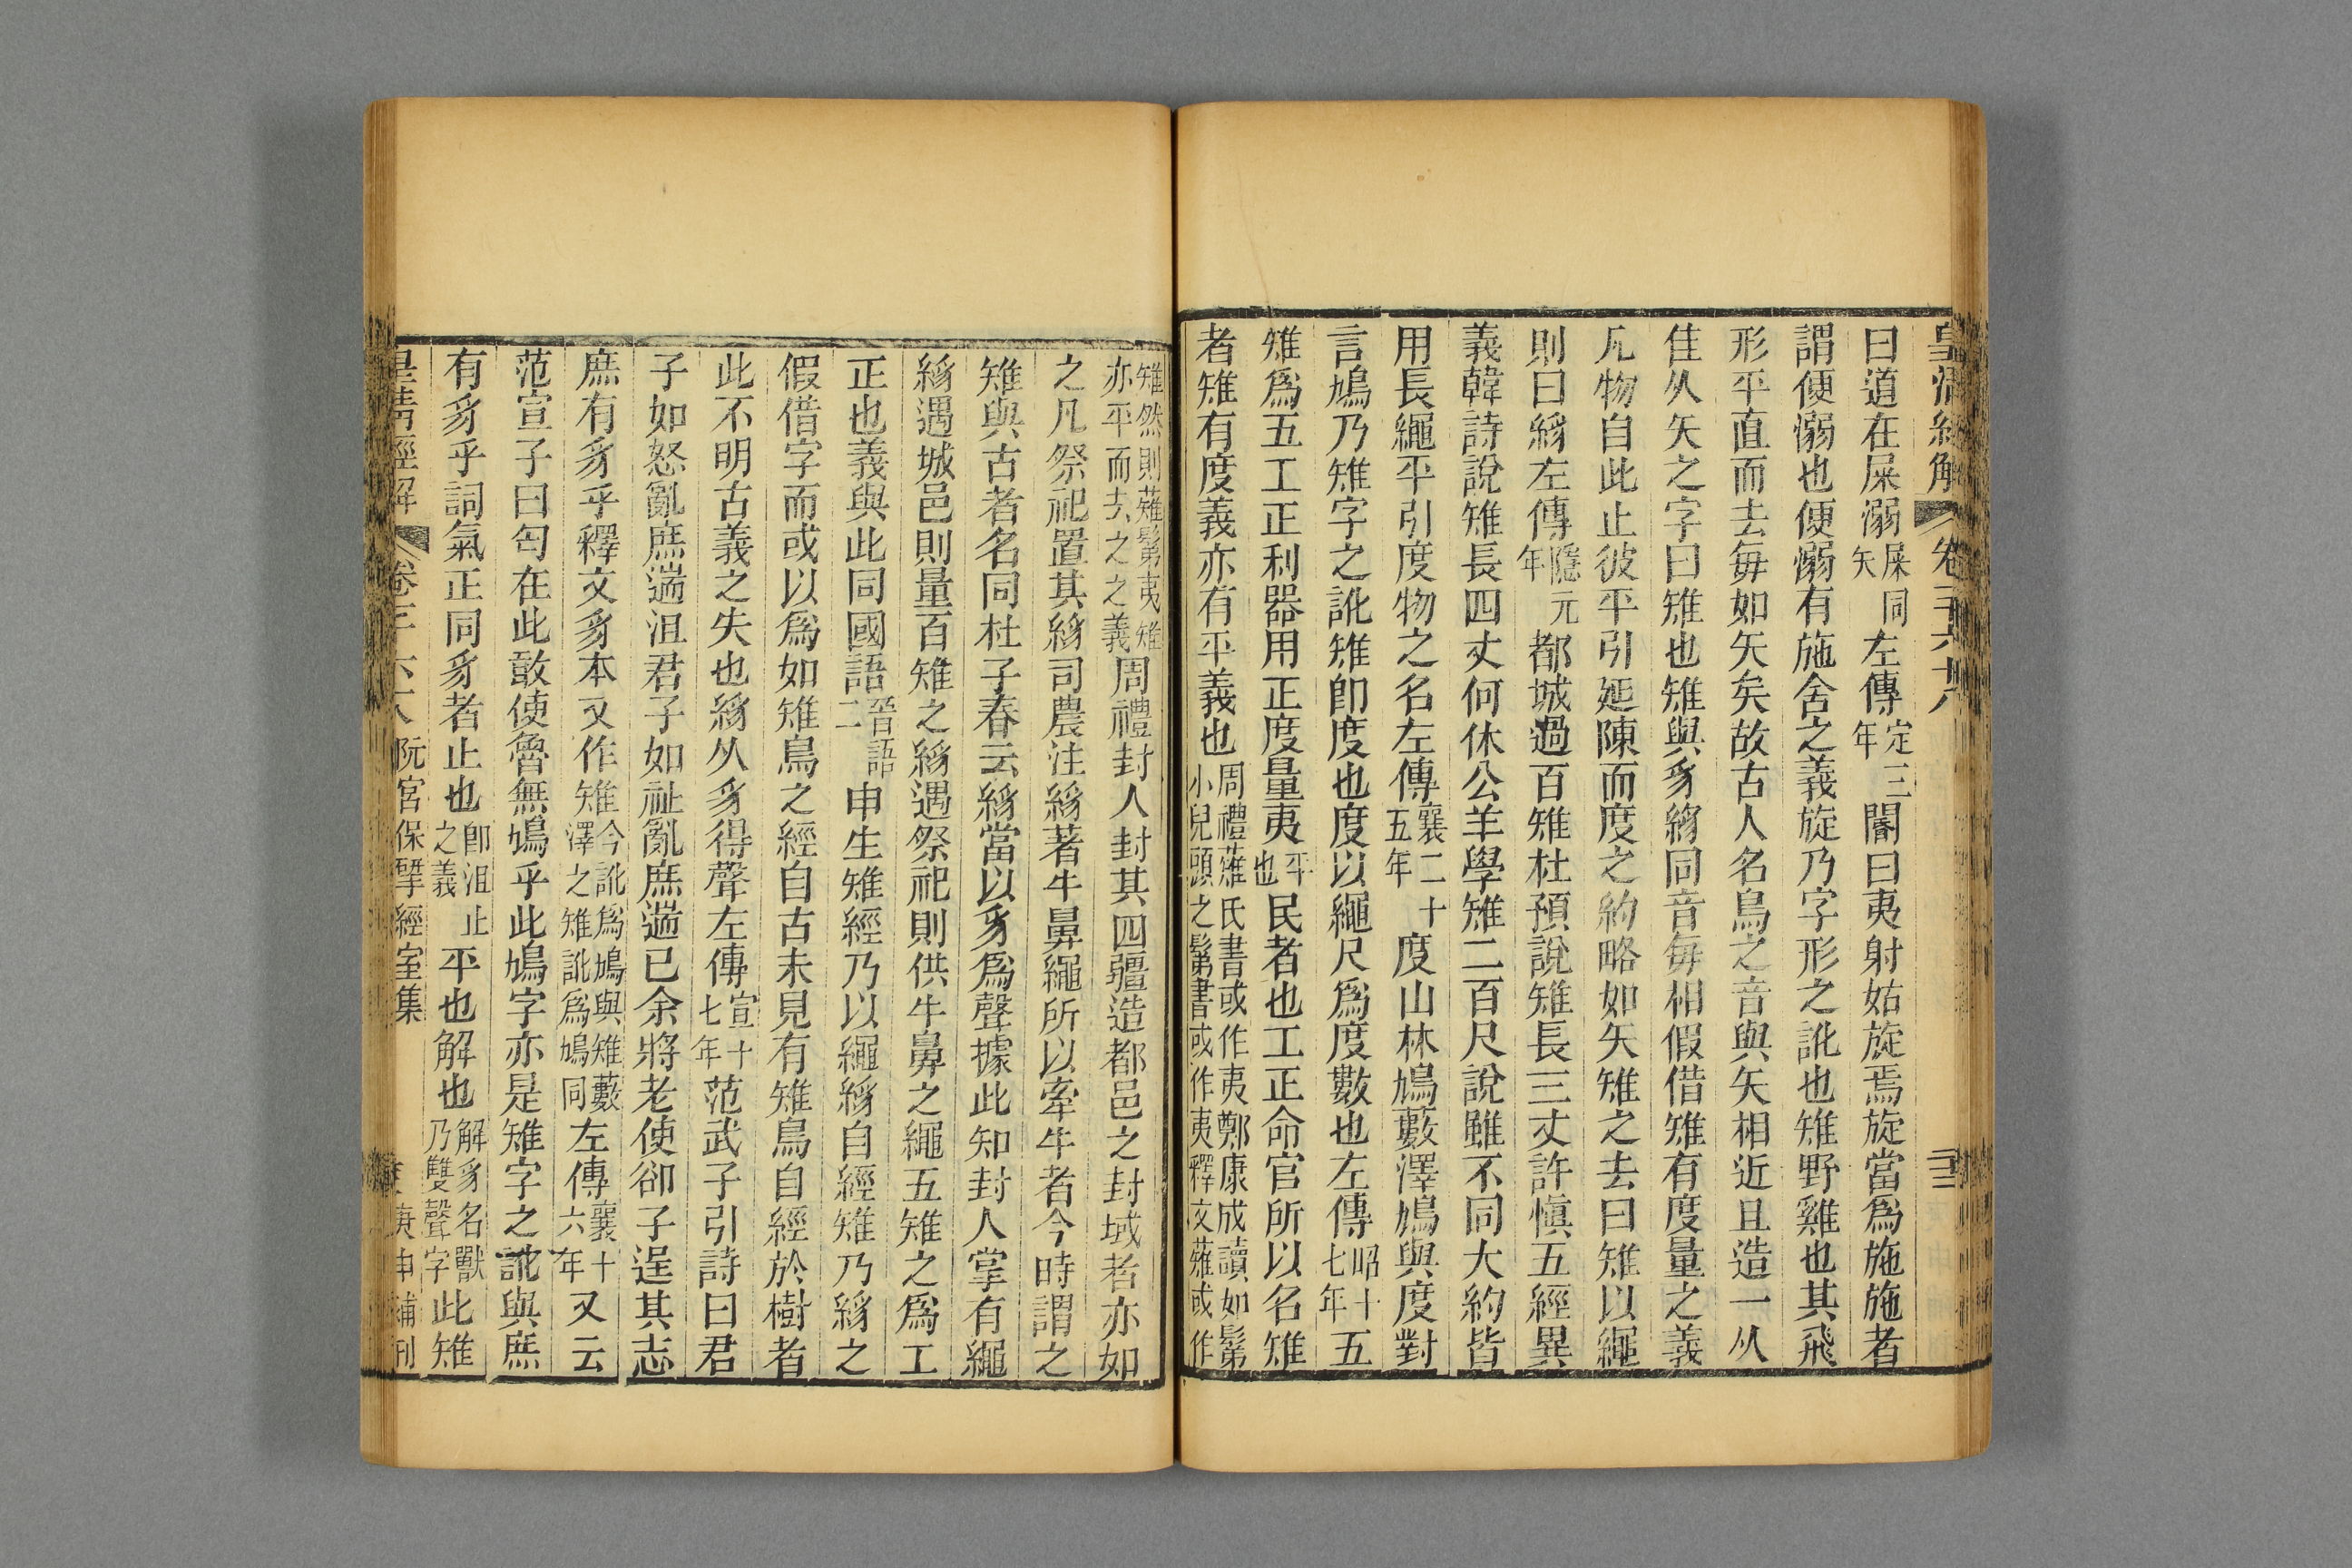 皇清經解 卷一千六十八 三
曰道在屎溺屎同矢左傳定三年閽曰夷射姑旋焉旋當爲施施者
謂便溺也便溺有施舍之義旋乃字形之訛也雉野雞也其飛
形平直而去每如矢矣故古人名鳥之音與矢相近且造一从
隹从矢之字曰雉也雉與豸䋫同音每相假借雉有度量之義
凡物自此止彼平引延陳而度之約略如矢雉之去曰雉以繩
則曰䋫左傳隱元年都城過百雉杜預說雉長三丈許愼五經異
義韓詩說雉長四丈何休公羊學雉二百尺說雖不同大約皆
用長繩平引度物之名左傳襄二十五年度山林鳩藪澤鳩與度對
言鳩乃雉字之訛雉卽度也度以繩尺爲度數也左傳昭十七年五
雉爲五工正利器用正度量夷平也民者也工正命官所以名雉
者雉有度義亦有平義也周禮薙氏書或作夷鄭康成讀如鬀小兒頭之鬀書或作夷釋文薙或作
雉然則薙鬀夷雉亦平而去之之義周禮封人封其四疆造都邑之封域者亦如
之凡祭祀置其䋫司農注䋫著牛鼻繩所以牽牛者今時謂之
雉與古者名同杜子春云䋫當以豸爲聲據此知封人掌有繩
䋫遇城邑則量百雉之䋫遇祭祀則供牛鼻之繩五雉之爲工
正也義與此同國語晉語二申生雉經乃以繩䋫自經雉乃䋫之
假借字而或以爲如雉鳥之經自古未見有雉鳥自經於樹者
此不明古義之失也䋫从豸得聲左傳宣十七年范武子引詩曰君
子如怒亂庶遄沮君子如祉亂庶遄已余將老使郤子逞其志
庶有豸乎釋文豸本又作雉今訛爲鳩與雉藪澤之雉訛爲鳩同左傳襄十六年又云
范宣子曰匄在此敢使魯無鳩乎此鳩字亦是雉字之訛與庶
有豸乎詞氣正同豸者止也卽沮止之義平也解也解豸名獸乃雙聲字此雉
皇清經解 卷一千六十八 阮宮保揅經室集 庚申補刊